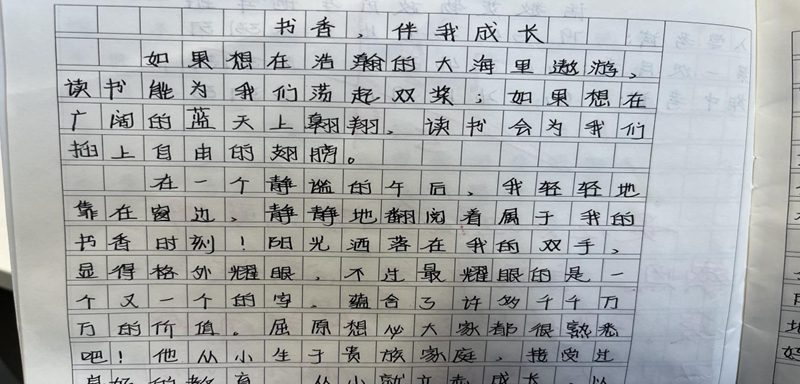 书香，伴我成长
如果想在浩瀚的大海里遨游，
读书能为我们荡起双桨；如果想在
广阔的蓝天上翱翔，读书会为我们
拍上自由的翅膀。
在一个静谧的午后，我轻轻地
靠在窗边，静静地翻阅着属于我的
书香时刻！阳光洒落在我的双手，
显得格外耀眼，不过最耀眼的是一
个又一个的字，蕴含了许多千千万
万的价值。屈原想必大家都很熟悉
吧！他从小生于贵族家庭，接受过
良好的教育，从小就立志成长，以